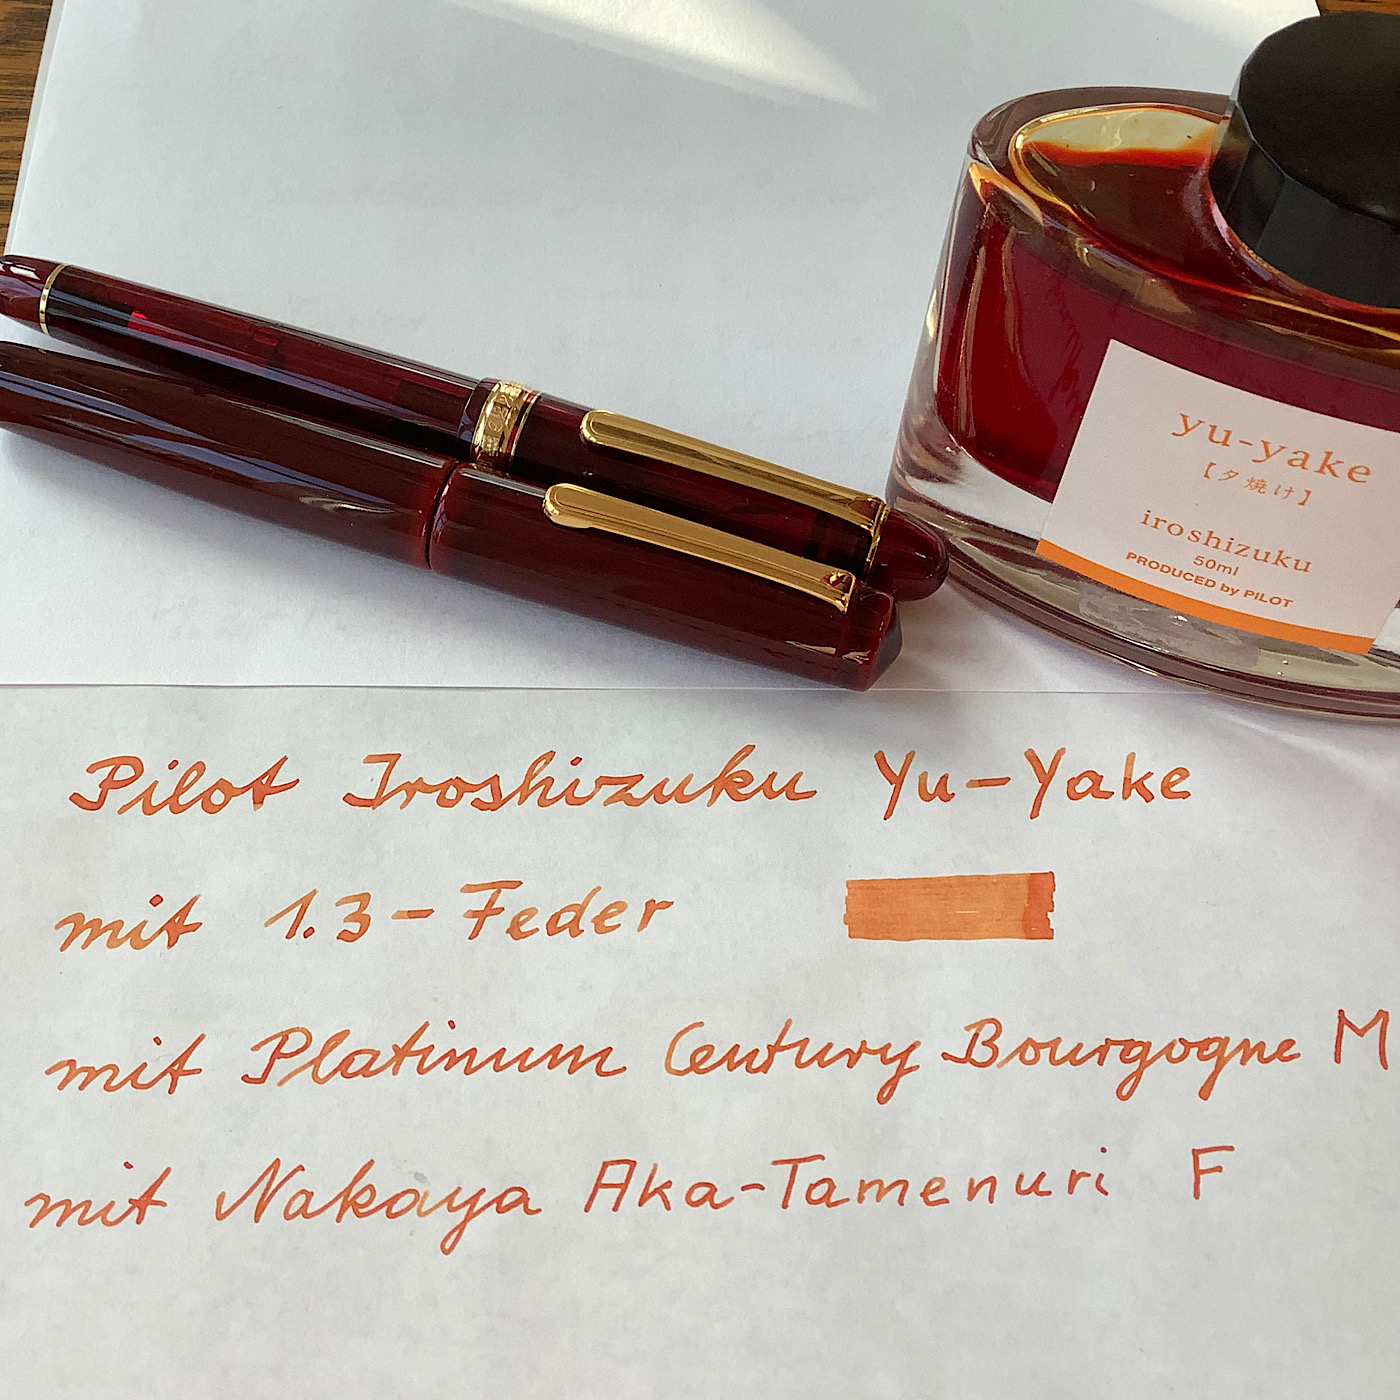 yu-yake
【夕焼け】
iroshizuku
50ml
PRODUCED by PILOT
Pilot Iroshizuku Yu-Yake
mit 1.3-Feder
mit Platinum Century Bourgogne M
mit Nakaya Aka-Tamenuri F